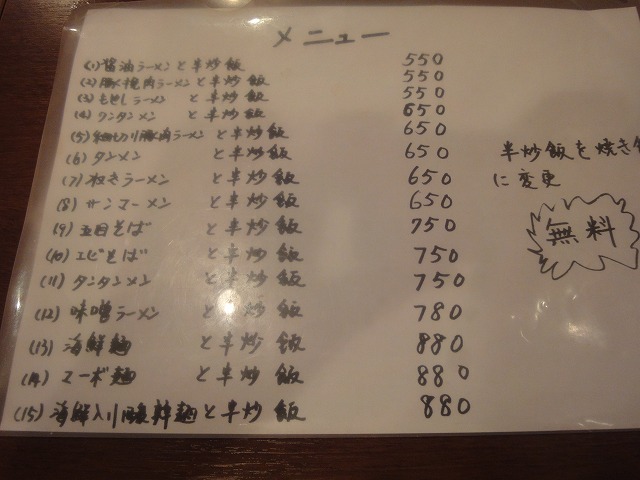 メニュー
(1) 醤油ラーメンと半炒飯 550
(2) 豚挽肉ラーメンと半炒飯 550
(3) もやしラーメン と半炒飯 550
(4) ワンタンメン と半炒飯 650
(5) 細切り豚肉ラーメンと半炒飯 650
(6) タンメン と半炒飯 650
(7) ねぎラーメン と半炒飯 650
(8) サンマーメン と半炒飯 650
(9) 五目そば と半炒飯 750
(10) エビそば と半炒飯 750
(11) タンタンメン と半炒飯 750
(12) 味噌ラーメン と半炒飯 780
(13) 海鮮麺 と半炒飯 880
(14) マーボ麺 と半炒飯 880
(15) 海鮮入り酸辣麺と半炒飯 880
半炒飯を焼き
に変更
無料